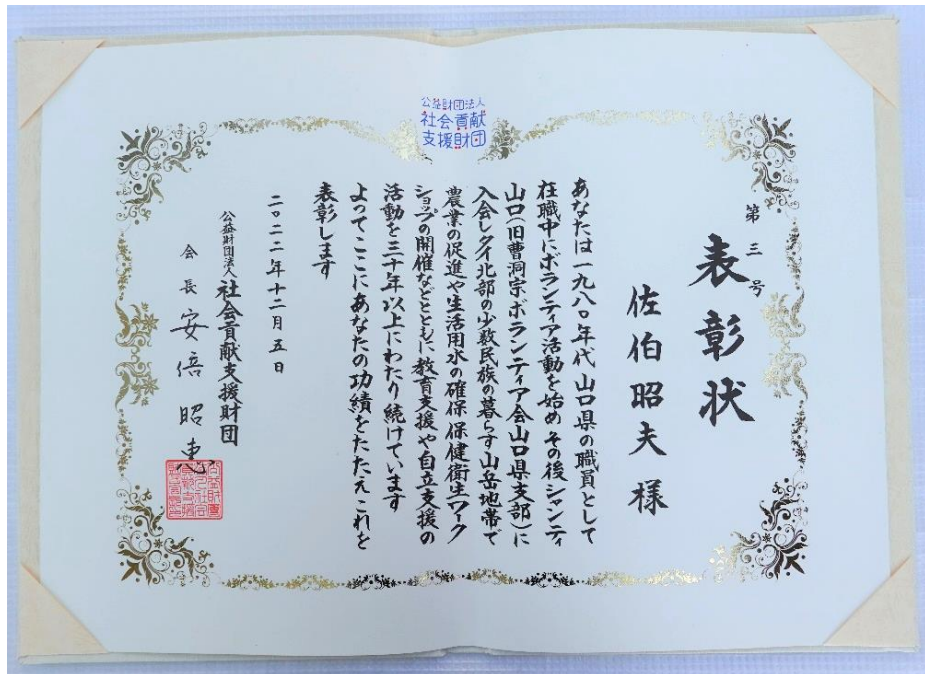 公益財団法人
社会貢献
支援財団
第三号
表彰状
佐伯昭夫様
あなたは一九八〇年代山口県の職員として
在職中にボランティア活動を始めその後シャンティ
山口(旧曹洞宗ボランティア会山口県支部)に
入会しタイ北部の少数民族の暮らす山岳地帯で
農業の促進や生活用水の確保保健衛生ワーク
ショップの開催などとともに教育支援や自立支援の
活動を三十年以上にわたり続けています
よってここにあなたの功績をたたえこれを
表彰します
二〇二二年十二月五日
公益財団法人社会貢献支援財団
会長安倍昭恵